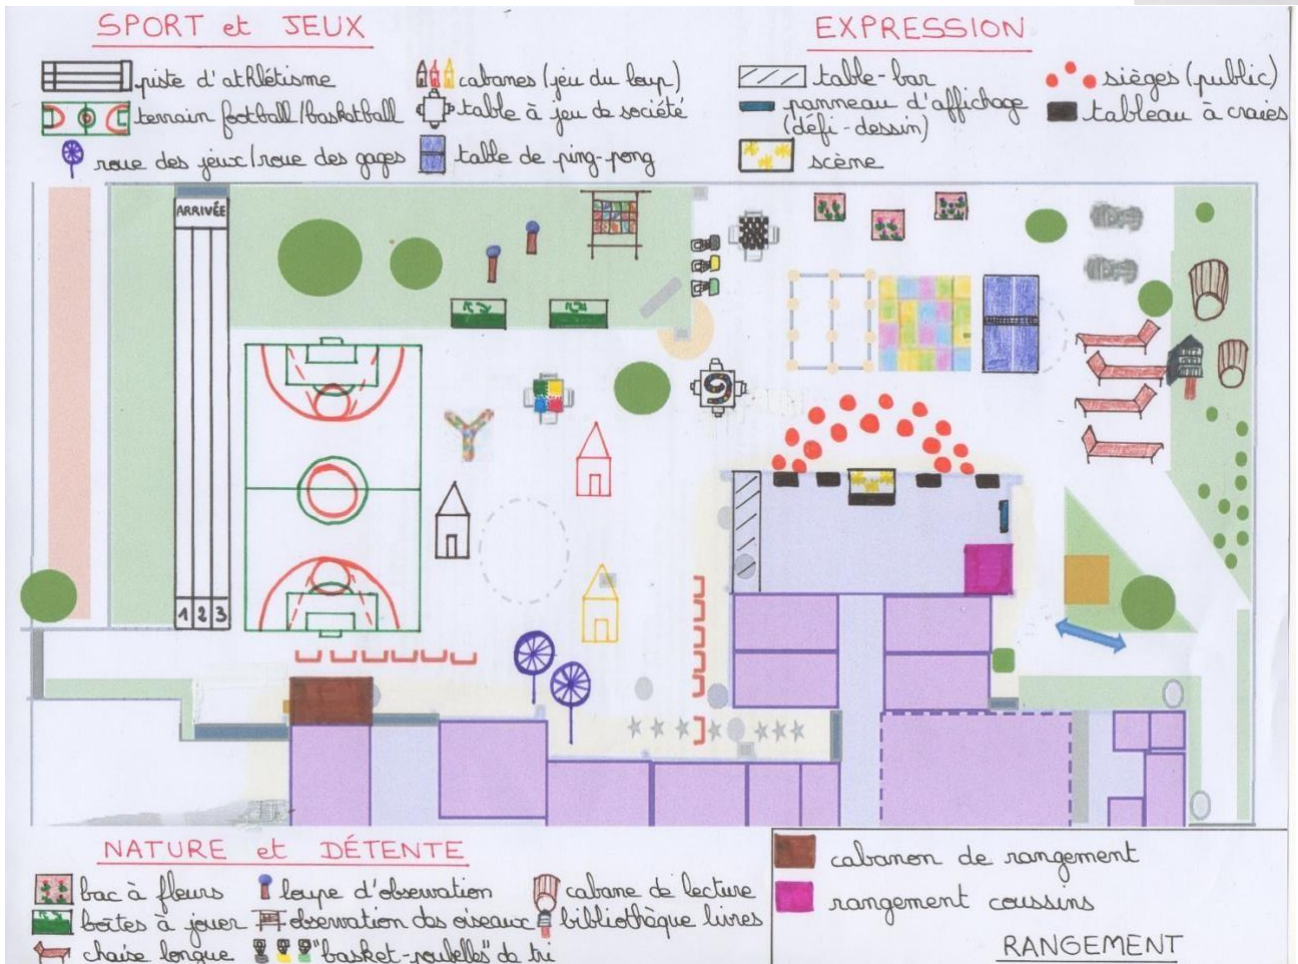 SPORT et JEUX
piste d'athlétisme
terrain football/basketball
roue des jeux/roue des gages
cabanes (jeu du loup)
table à jeu de société
table de ping-pong
EXPRESSION
table-bar
panneau d'affichage
(défi-dessin)
scène
sièges (public)
tableau à craies
ARRIVÉE
1 2 3
NATURE et DÉTENTE
bac à fleurs
boîtes à jouer
chaise longue
loupe d'observation
observation des oiseaux
"basket-poubelles" de tri
cabane de lecture
bibliothèque livres
cabanon de rangement
rangement coussins
RANGEMENT